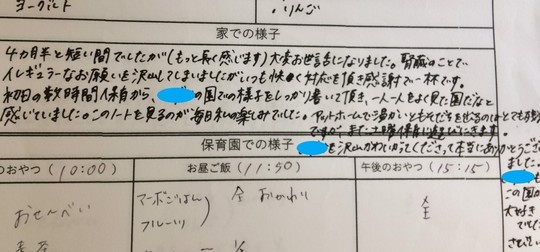 ヨーグルト
りんご
家での様子
4カ月半と短い間でしたが(もっと長く感じます)大変お世話になりました。腎臓のことで
イレギュラーなお願いを沢山してしまいましたがいつも快く対応を頂き感謝で一杯です。
初日の数時間保育から、の園での様子をしっかり書いて頂き、一人一人をよく見た園だなと
感じていました。このノートを見るのが毎日私の楽しみでした。アットホームで温かい
ですが、また土曜保育に遊びにきます。
を沢山かわいがってくださって本当にありがとうござ
ました。
保育園での様子
のおやつ(10:00)
お昼ご飯(11:50)
午後のおやつ(15:15)
おせんべい
マーボごはん
フルーツ
全 おかわり
全
も
この園が
大好き
でした